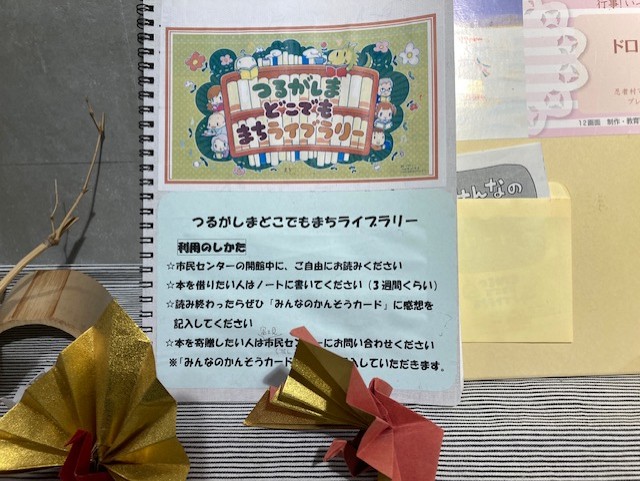 つるがしま
どこでも
まちライブラリー
つるがしまどこでもまちライブラリー
利用のしかた
☆市民センターの開館中に、ご自由にお読みください
☆本を借りたい人はノートに書いてください（3週間くらい）
☆読み終わったらぜひ「みんなのかんそうカード」に感想を
記入してください
☆本を寄贈したい人は市民セン ーにお問い合わせください
※「みんなのかんそうカード 入していただきます。
行事！いっ
ドロ
忍者村で
プレ
12画面 制作・教育
んなの